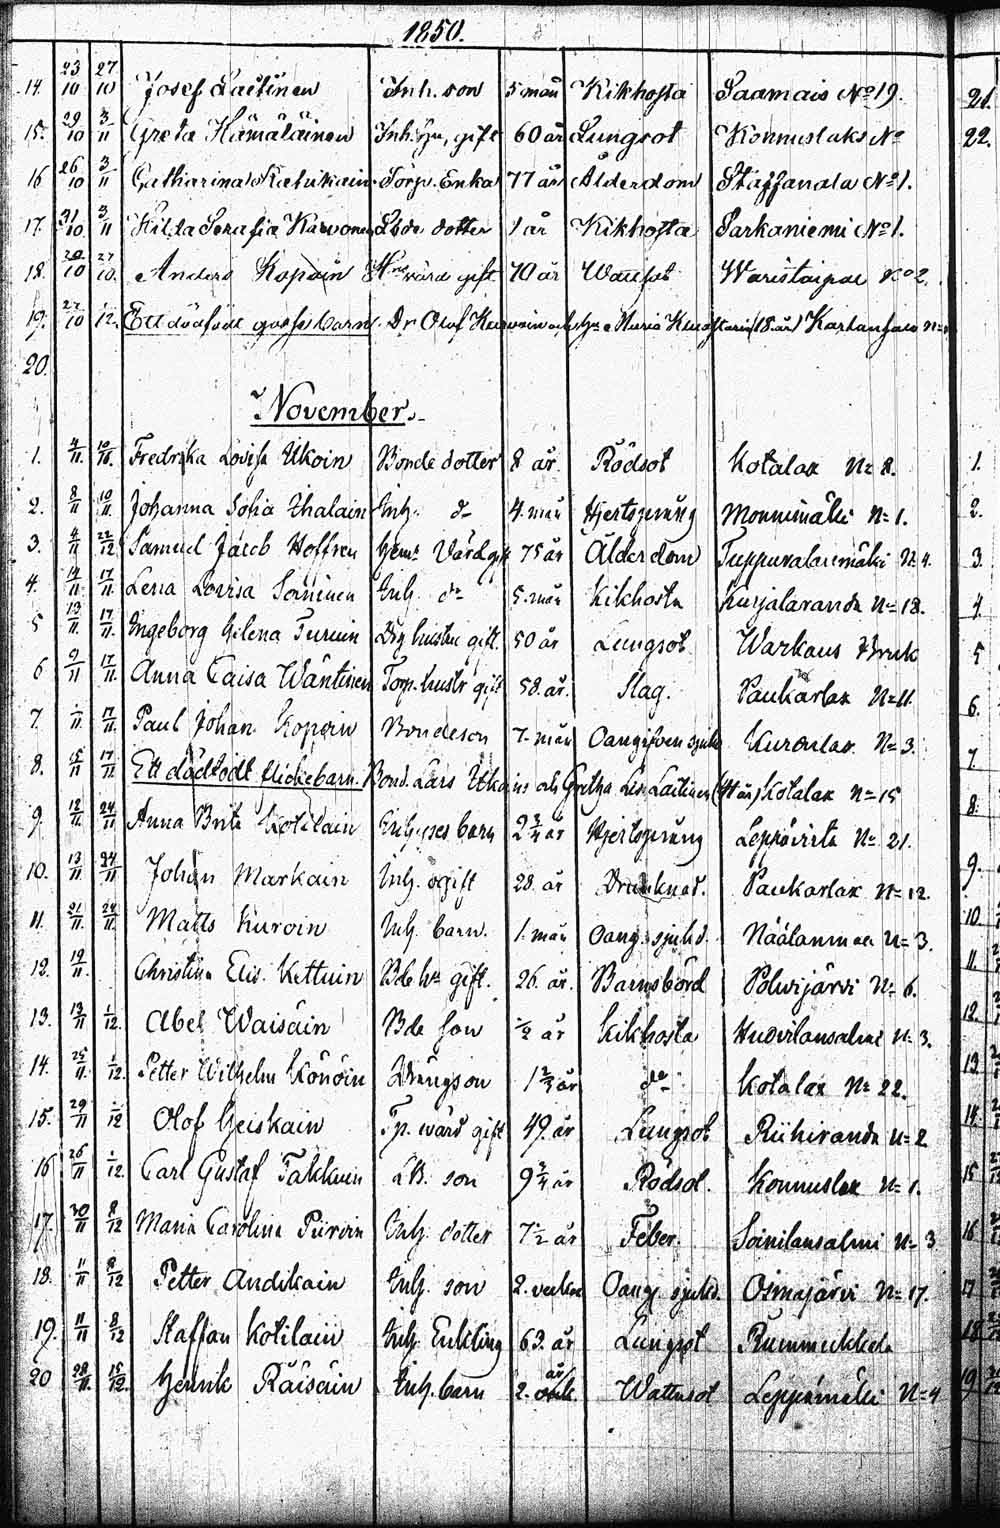 1850.
14. 23/10 27/10 Josef Laitinen Inh. son 5 mån Kikhosta Saamais No 19.
15. 29/10 3/11 Greta Hämäläinen Inh. gift 60 år Lungsot Konnuslaks No
16 26/10 3/11 Catharina Torp. Enka 77 år Ålderdom Staffanala No 1.
17. 31/10 3/11 Hilda Serafia Karvonen Lbde dotter 1 år Kikhosta Sarkaniemi No 1.
18. 20/10 27/10. Anders Kopain värd gift 70 år Wattsot Waristaipae No 2.
19. 27/10 1/12. Ett dödfödt gosse barn. Dr Olof och Maria (18 år)
20.
November.
1. 4/11. 10/11. Fredrika Lovisa Ukoin Bonde dotter 8 år. Rödsot Kotalax No 8.
2. 8/11 10/11. Johanna Sofia Ihalain Inh. do 4. mån Hjertsprång Monnimäki No 1.
3. 4/11 22/12 Samuel Jacob Hoffren Hem. Värd gift 75 år Ålderdom Tuppuralanmäki No 4.
4. 14/11. 17/11. Lena Lovisa Soininen Inh. do 5. mån Kikhosta Kurjalaranda No 18.
5 13/11. 17/11. Ingeborg Helena Turuin Drg hustru gift. 50 år Lungsot Warkaus Bruk
6 9/11 17/11. Anna Caisa Wäntinen Torp. hustr gift 58. år Slag. Paukarlax No 11.
7. 1/11 17/11. Paul Johan Kopoin Bondeson 7. mån Oangifven sjukd Kurolax No 3.
8. 15/11 17/11 Ett dödfödt flickebarn. Bond. Lars Ukoins och Gretha Lis. Laitinen Kotalax No 15
9. 12/11. 24/11 Anna Brita Kotilain Inhyses barn 2 3/4 år Hjertsprång Leppävirta No 21.
10. 13/11 24/11 Johan Markain Inh. ogift 28. år Drunknad. Paukarlax No 12.
11. 21/11. 24/11. Matts Kuroin Inh. barn. 1. mån Oang. sjukd. Näälänmaa No 3.
12. 19/11. Christina Elis. Kettuin Bde hu gift. 26. år. Barnsbörd Polwijärvi No 6.
13. 13/11 1/12. Abel Waisäin Bde son 1/2 år Kikhosta Huovilansalmi No 3.
14. 25/11. 1/12. Petter Wilhelm Könöin Drängson 1 2/3 år do Kotalax No 22.
15. 29/11 1/12 Olof Heiskain Tp. värd gift 49. år Lungsot Riihiranda No 2
16 26/11 1/12. Carl Gustaf Takkuin LB. son 9 3/4 år Rödsot. Konnuslax No 1.
17. 30/11 8/12 Maria Carolina Piiroin Inh. dotter 7 1/2 år Feber. Soinilansalmi No 3
18. 11/11 8/12 Petter Andikain Inh. son 2. veckor Oang. sjukd. Osmajärvi No 17.
19. 11/11 8/12 Staffan Kotilain Inh. Enkling 63. år Lungsot Rummukkala
20 28/11. 15/12. Henrik Räisäin Inh. barn 2. år Wattusot Leppämäki No 4
21.
22.
1.
2.
3.
4
5
6.
7
8.
9.
10.
11.
12.
13
14.
15
16
17
18
19